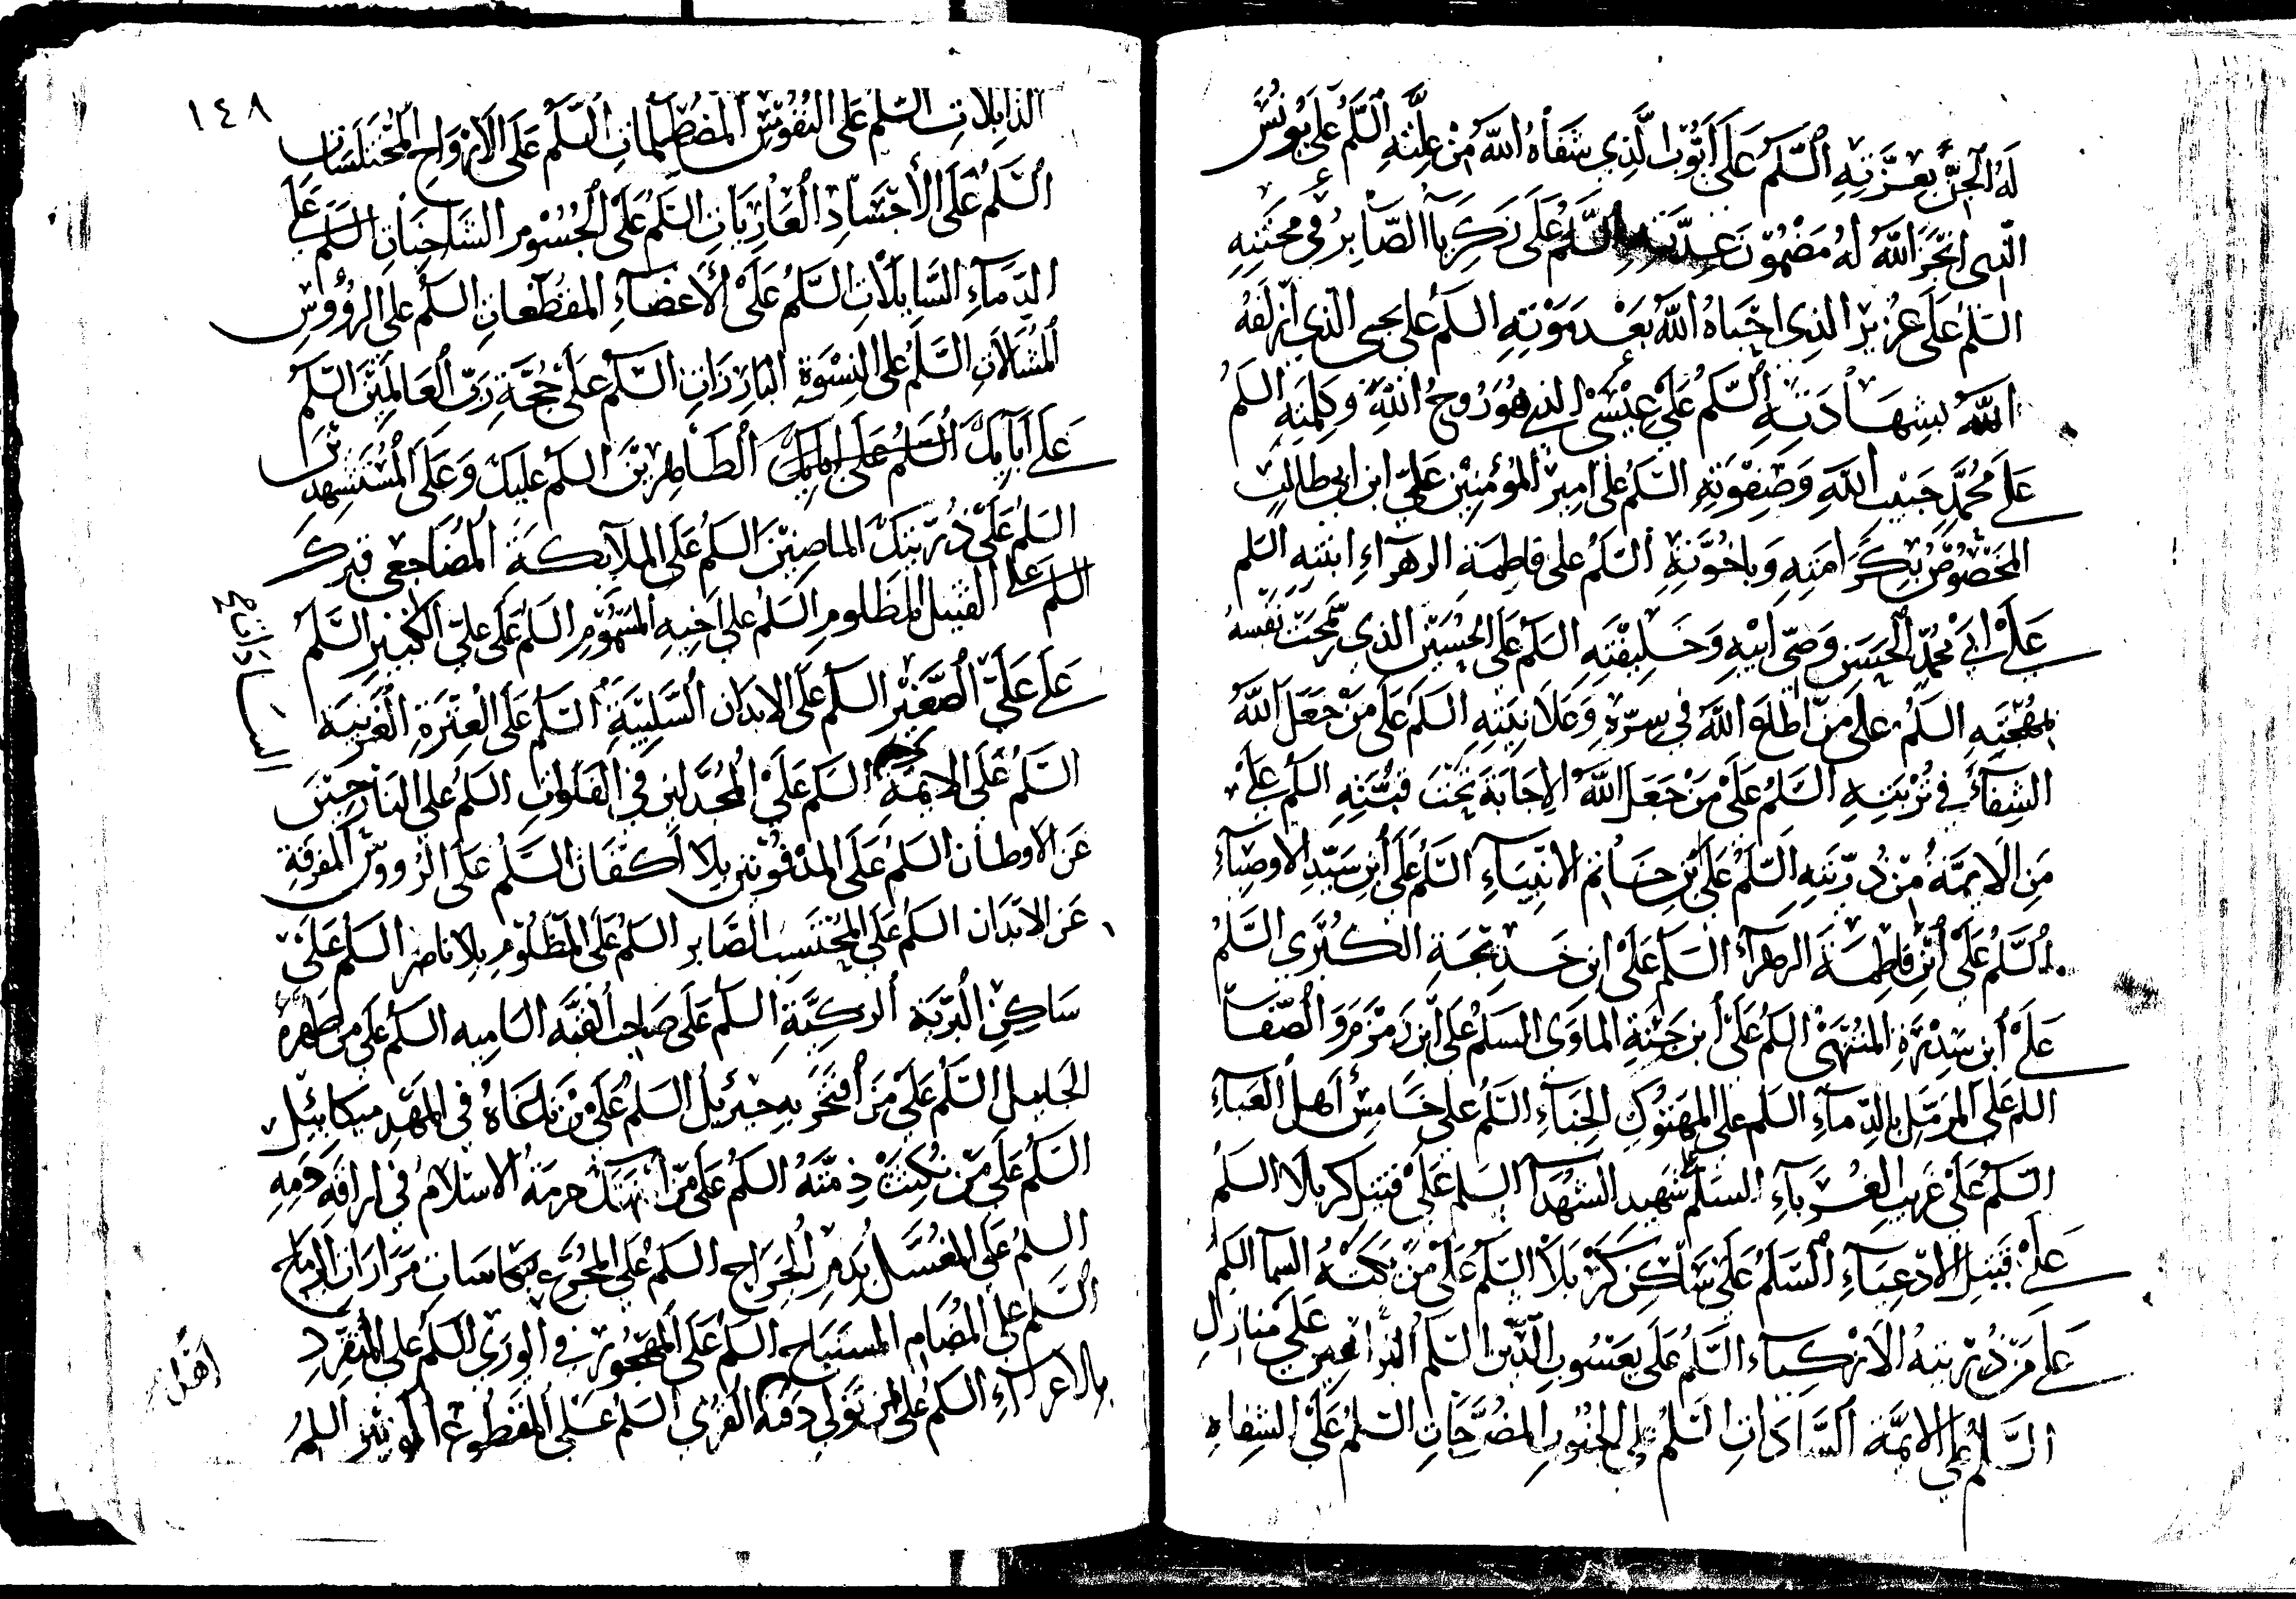 له الجن بعزته السلم على أيوب الذي شفاه الله من علته السلم على يونس
الذي انجز الله له مضمون عدته السلم على زكريا الصابر في محنته
السلم على عزير الذي احياه الله بعد موته السلم على يحيى الذي ازلفه
الله بشهادته السلم على عيسى الذي هو روح الله وكلمته السلم
على محمد حبيب الله وصفوته السلم على امير المؤمنين علي ابن ابي طالب
المخصوص بكرامته وباخوته السلم على فاطمة الزهراء ابنته السلم
على ابي محمد الحسن وصي ابيه وخليفته السلم على الحسين الذي سمحت نفسه
بمهجته السلم على من اطلع الله في سره وعلانيته السلم على من جعل الله
الشفاء في تربته السلم على من جعل الله الاجابة تحت قبته السلم على
من الائمة من ذريته السلم على بن خاتم الانبياء السلم على ابن سيد الاوصياء
السلم على ابن فاطمة الزهراء السلم على ابن خديجة الكبرى السلم
على ابن سدرة المنتهى السلم على ابن جنة الماوى السلم على ابن زمزم والصفا
السلم على المرمل بالدماء السلم على المهتوك الخباء السلم على خامس اهل العباء
السلم على غريب الغرباء السلم على شهيد الشهداء السلم على قتيل كربلا السلم
على قتيل الادعياء السلم على ساكن كربلا السلم على من بكته السما السلم
على من ذريته الازكياء السلم على يعسوب الدين السلم على منازل البراهين
السلم على الائمة السادات السلم على الجنوب المضرجات السلم على الشفاه
١٤٨
الذابلات السلم على النفوس المصطلمات السلم على الارواح المختلسات
السلم على الأجساد العاريات السلم على الجسوم الشاحبات السلم على
الدماء السايلات السلم على الأعضاء المقطعات السلم على الرؤوس
المشالات السلم على النسوة البارزات السلم على حجة رب العالمين السلم
على آبايك الطاهرين السلم عليك وعلى المستشهدين
السلم على ذريتك الناصرين السلم على الملايكة المضاجعي قبرك
السلم على القتيل المظلوم السلم على اخيه المسموم السلم على علي الكبير السلم
على علي الصغير السلم على الابدان السليبة السلم على العترة الغريبة
السلم على الائمة السلم على المجدلين في الفلوات السلم على النازحين
عن الاوطان السلم على المدفونين بلا اكفان السلم على الرووس المفرقة
عن الابدان السلم على المحتسب الصابر السلم على المظلوم بلا ناصر السلم على
ساكن التربة الزكية السلم على صاحب القبة السامية السلم على من طهره
الجليل السلم على من افتخر به جبرئيل السلم على من ناغاه في المهد ميكائيل
السلم على من نكثت ذمته السلم على من انتهك حرمة الاسلام في اراقة دمه
السلم على المغسل بدم الجراح السلم على المجرع بكاسات مرارات الرماح
السلم على المضام المستباح السلم على المهجور في الورى السلم على المنفرد
بالاعراء السلم على من تولى دفنه القرى السلم على المقطوع الوتين السلم